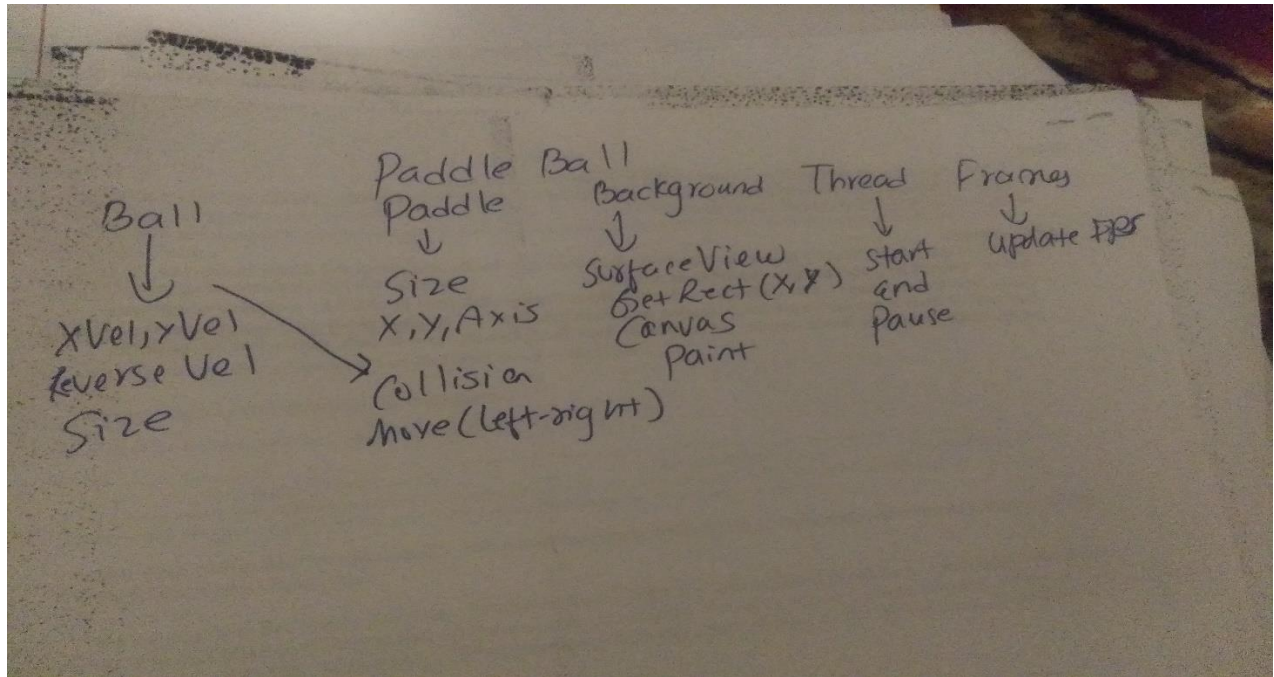 Paddle Ball
Ball
XVel, YVel
Reverse Vel
Size
Paddle
Size
X, Y, Axis
Collision
Move (Left-right)
Background
SurfaceView
GetRect (X, Y)
Canvas
Paint
Thread
Start
End
Pause
Frames
Update